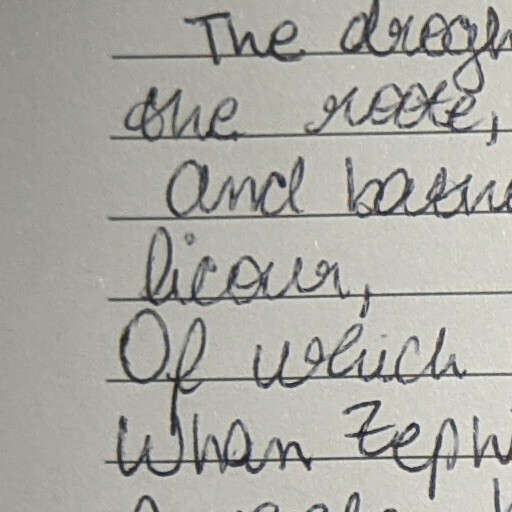 The drogh
the roote,
And bathe
licour,
Of which
Whan Zeph